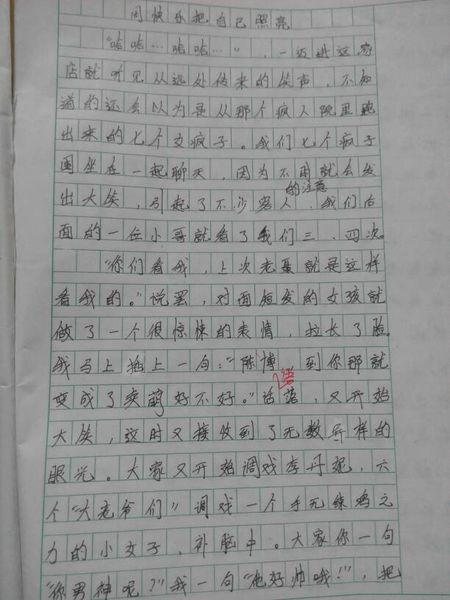 用快乐把自己照亮
“哈哈…哈哈…”，一迈进这家
店就听见从远处传来的笑声，不知
道的还会以为是从那个疯人院里跑
出来的七个女疯子。我们七个疯子
围坐在一起聊天，因为不时就会发
出大笑，引起了不少客人的注意，我们后
面的一位小哥就看了我们三、四次。
“你们看我，上次老聂就是这样
看我的。”说罢，对面短发的女孩就
做了一个很惊悚的表情，拉长了脸。
我马上补上一句：“陈博，到你那就
变成了卖萌好不好。”话落，又开始
大笑，这时又接收到了无数异样的
眼光。大家又开始调戏李丹妮，六
个“大老爷们”调戏一个手无缚鸡之
力的小女子，补脑中。大家你一句
“你男神呢？”我一句“他好帅哦！”，把